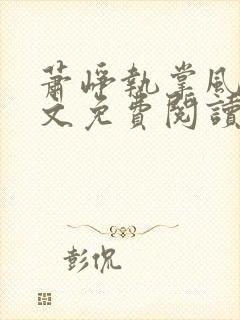 萧崢執掌風
文免費閱讀
彭侃